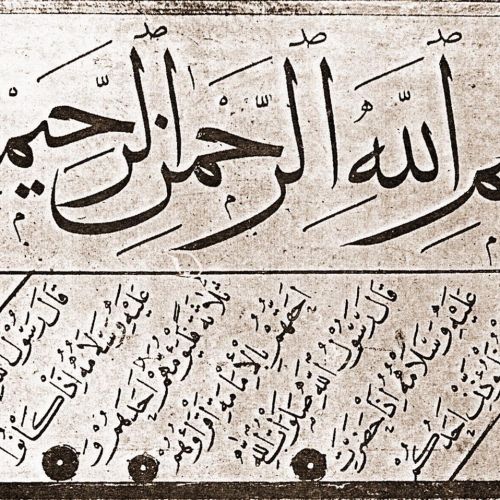 م الله الرحمن الرحيم
قال رسول الله
عليه وسلامه اذا كانوا
ثلاثة فليؤمهم احدهم و
احقهم بالامامة اقرؤهم
قال رسول الله صلوات الله
عليه وسلامه اذا حضرت
احدكم